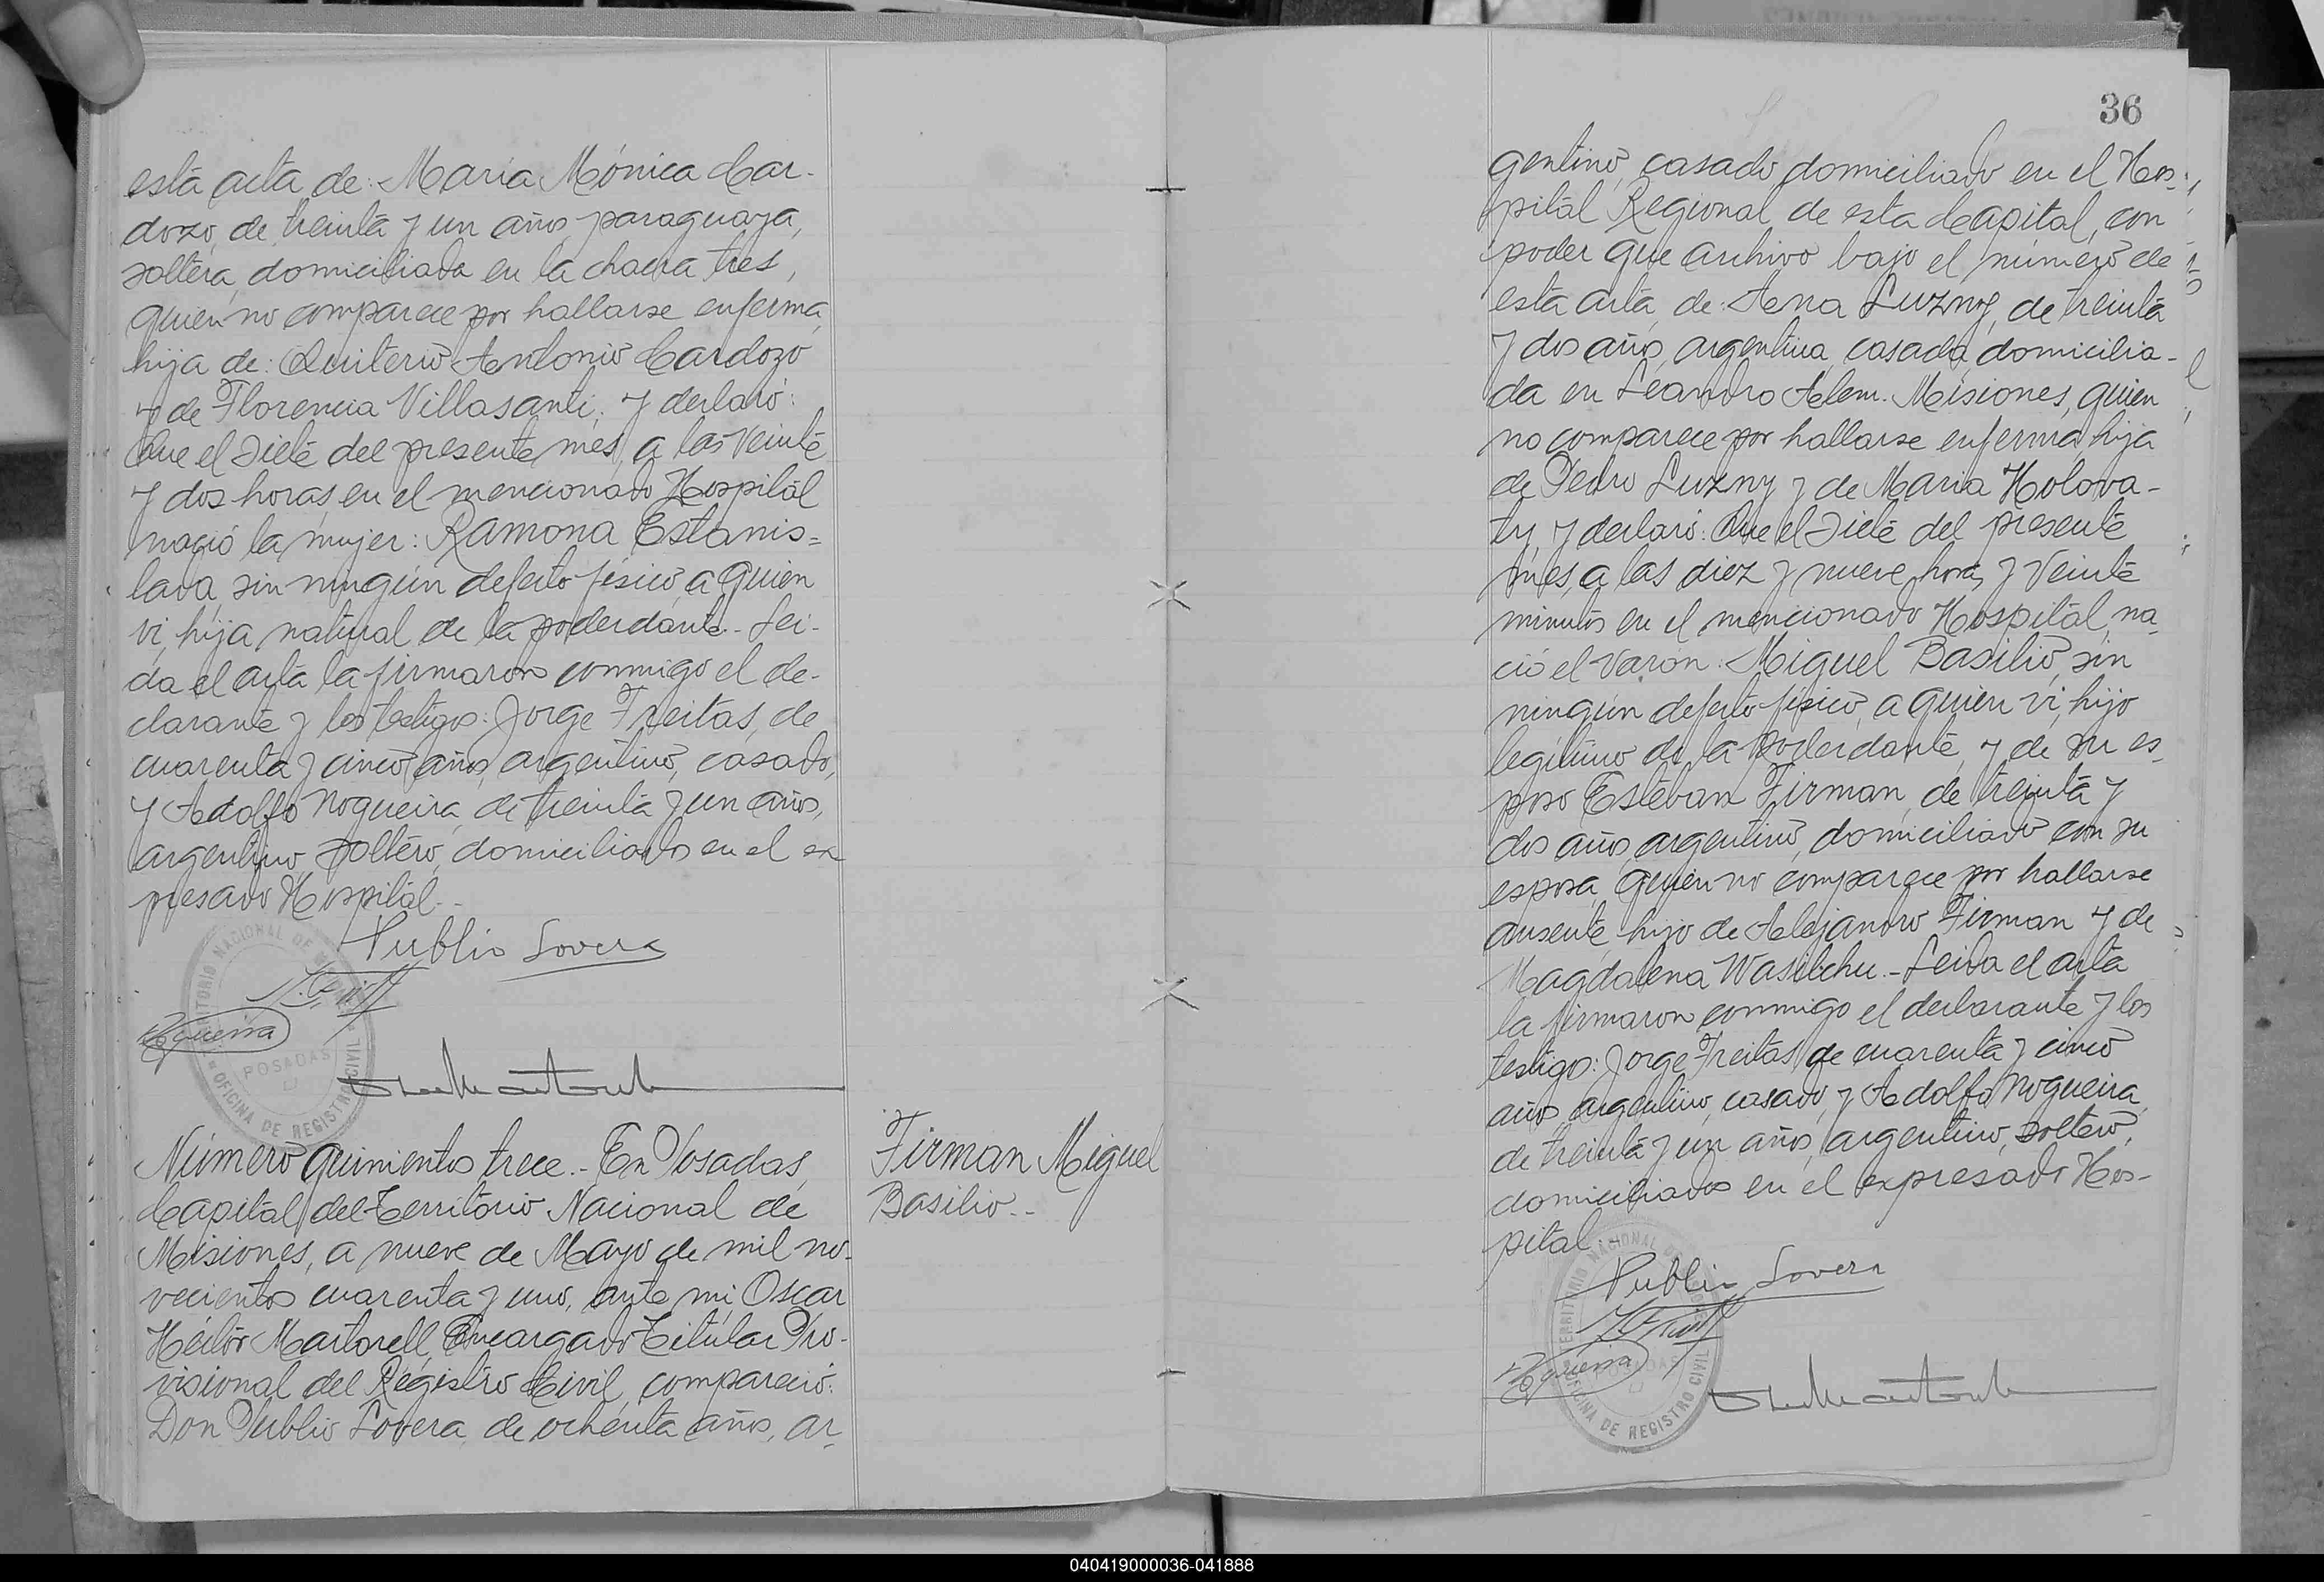 esta acta de: María Mónica Car-
dozo, de treinta y un años, paraguaya,
soltera, domiciliada en la chacra tres,
quien no comparece por hallarse enferma,
hija de: Quiterio Antonio Cardozo
y de Florencia Villasanti; y declaró:
Que el siete del presente mes, a las veinte
y dos horas, en el mencionado Hospital
nació la mujer: Ramona Estanis=
lada, sin ningún defecto físico, a quien
vi, hija natural de la poderdante.- Leí-
da el acta la firmaron conmigo el de-
clarante y los testigos: Jorge Freitas, de
cuarenta y cinco años, argentino, casado,
y Adolfo Nogueira, de treinta y un años,
argentino, soltero, domiciliados en el ex
presado Hospital.-
Publio Lovera
Nogueira
TERRITORIO NACIONAL DE MISIONES
POSADAS
OFICINA DE REGISTRO CIVIL
Número quinientos trece.- En Posadas,
Capital del Territorio Nacional de
Misiones, a nueve de Mayo de mil no-
vecientos cuarenta y uno, ante mi, Oscar
Héctor Martorell, Encargado Titular Pro-
visional del Registro Civil, compareció:
Don Publio Lovera, de ochenta años, ar-
Firman Miguel
Basilio.-
36
gentino, casado, domiciliado en el Hos-
pital Regional de esta Capital, con
poder que archivo bajo el número de
esta acta, de: Ana Luzny, de treinta
y dos años, argentina, casada, domicilia-
da en Leandro Alem. Misiones, quien
no comparece por hallarse enferma, hija
de Pedro Luzny y de María Holova-
ty, y declaró: Que el siete del presente
mes, a las diez y nueve horas y veinte
minutos en el mencionado Hospital, na-
ció el varón: Miguel Basilio, sin
ningún defecto físico, a quien vi, hijo
legítimo de la poderdante, y de su es-
poso Estéban Firman, de treinta y
dos años, argentino, domiciliado con su
esposa, quien no comparece por hallarse
ausente, hijo de Alejandro Firman y de
Magdalena Wasilchu.- Leída el acta
la firmaron conmigo el declarante y los
testigos: Jorge Freitas, de cuarenta y cinco
años, argentino, casado, y Adolfo Nogueira,
de treinta y un años, argentino, soltero,
domiciliados en el expresado Hos-
pital.-
Publio Lovera
Nogueira
TERRITORIO NACIONAL DE MISIONES
POSADAS
OFICINA DE REGISTRO CIVIL
040419000036-041888